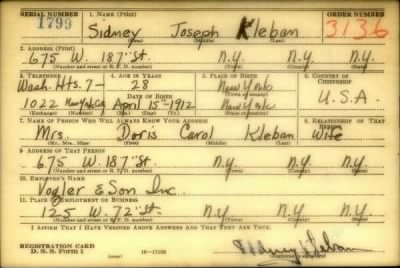 SERIAL NUMBER 1. NAME (Print) ORDER NUMBER
1799 Sidney Joseph Kleban 3136
(First) (Middle) (Last)
2. ADDRESS (Print)
675 W. 187 St. N.Y. N.Y.
(Number and street or R. F. D. number) (Town) (County) (State)
3. TELEPHONE 4. AGE IN YEARS 5. PLACE OF BIRTH 6. COUNTRY OF CITIZENSHIP
Wash. Hts. 7- 28 New York
DATE OF BIRTH (Town or county) U.S.A.
1022 New York City April 15th 1912 New York
(Exchange) (Number) (Mo.) (Day) (Yr.) (State or country)
7. NAME OF PERSON WHO WILL ALWAYS KNOW YOUR ADDRESS 8. RELATIONSHIP OF THAT PERSON
Mrs. Doris Carol Kleban Wife
(Mr., Mrs., Miss) (First) (Middle) (Last)
9. ADDRESS OF THAT PERSON
675 W. 187th St. N.Y. N.Y.
(Number and street or R. F. D. number) (Town) (County) (State)
10. EMPLOYER'S NAME
Vogler & Son Inc.
11. PLACE OF EMPLOYMENT OR BUSINESS
125 W. 72nd St. N.Y. N.Y.
(Number and street or R. F. D. number) (Town) (County) (State)
I AFFIRM THAT I HAVE VERIFIED ABOVE ANSWERS AND THAT THEY ARE TRUE.
REGISTRATION CARD Sidney Kleban
D. S. S. Form 1 (over) (Registrant's signature)